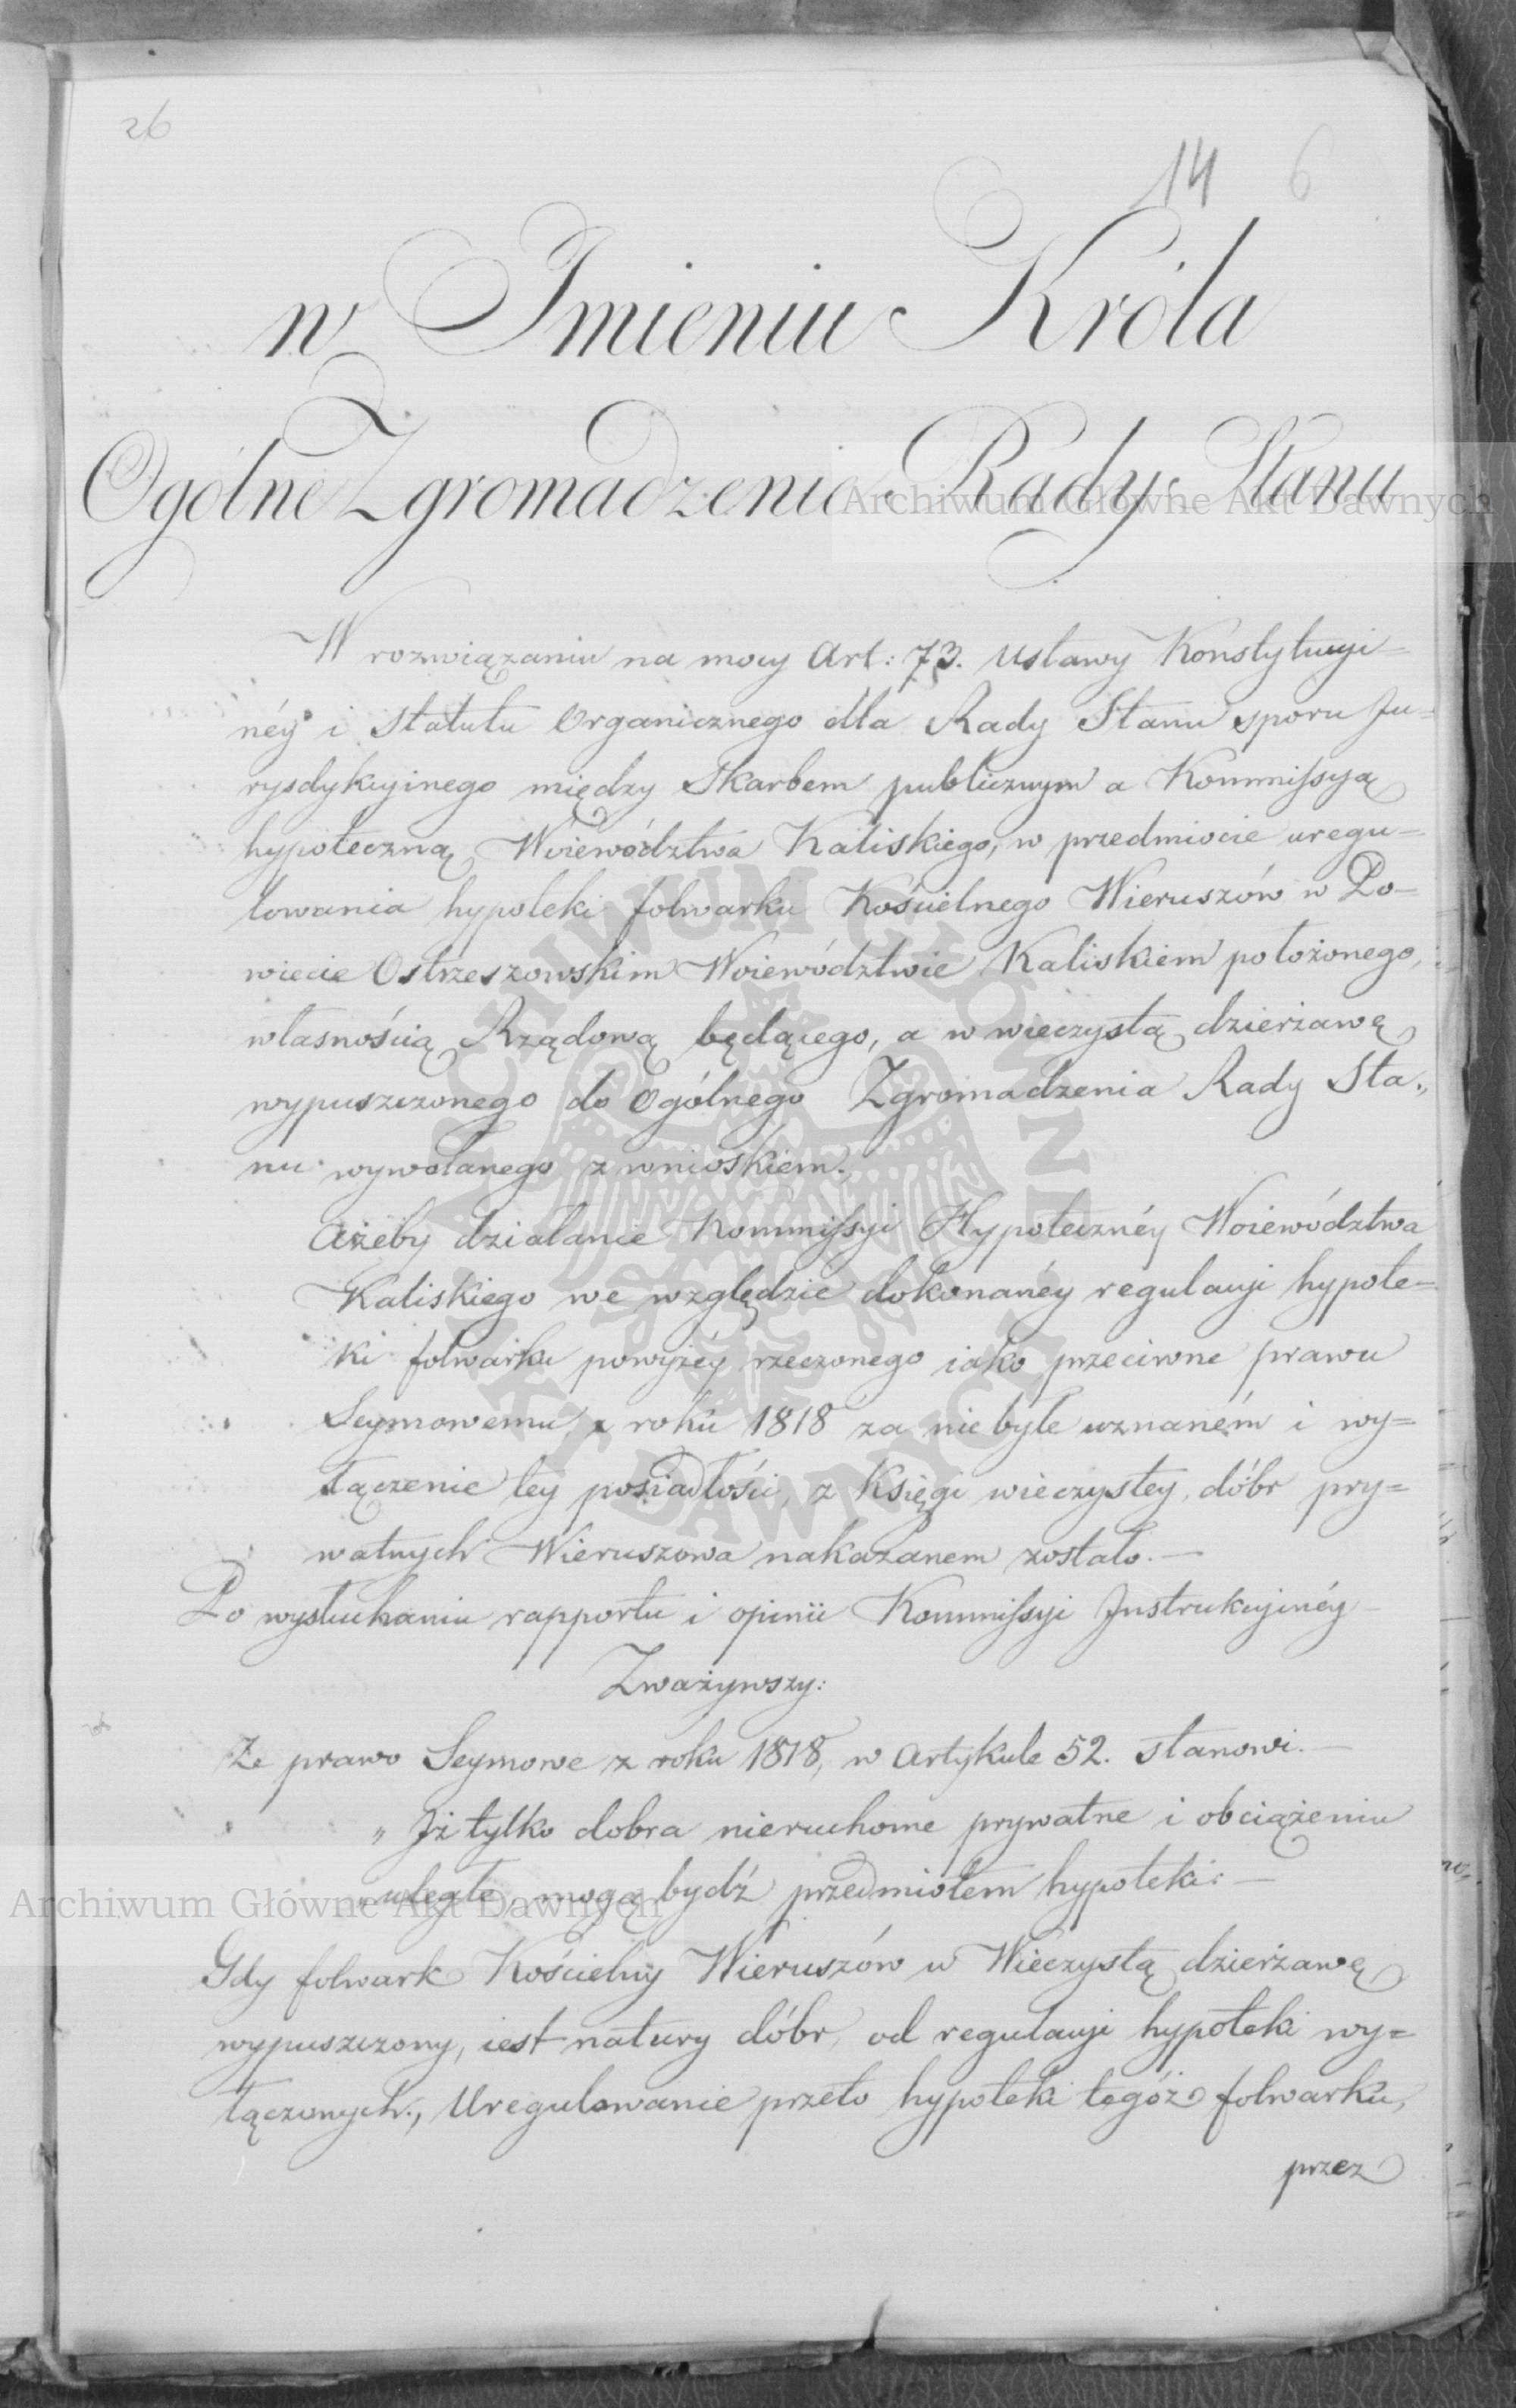 26
14 6
w Imieniu Króla
Ogólne Zgromadzenie Rady Stanu
Archiwum Główne Akt Dawnych
W rozwiązaniu na mocy Art: 73. Ustawy Konstytucyi=
néy i Statutu Organicznego dla Rady Stanu sporu Ju=
rysdykcyinego między Skarbem publicznym a Kommissyą
hypoteczną Woiewództwa Kaliskiego, w przedmiocie uregu=
lowania hypoteki folwarku Kościelnego Wieruszów w Po=
wiecie Ostrzeszowskim Woiewództwie Kaliskiem położonego,
własnością Rządową będącego, a w wieczystą dzierżawę
wypuszczonego do Ogólnego Zgromadzenia Rady Sta„
nu wywołanego z wnioskiem.
Ażeby działanie Kommissyi Hypotecznéy Woiewództwa
Kaliskiego we względzie dokonanéy regulacyi hypote=
ki folwarku powyżéy rzeczonego iako przeciwne prawu
Seymowemu z roku 1818 za niebyłe uznaném i wy=
łączenie tey posiadłości, z Księgi wieczystey dóbr pry=
watnych Wieruszowa nakazanem zostało.—
Po wysłuchaniu rapportu i opinii Kommissyi Instrukcyinéy
Zważywszy:
Że prawo Seymowe z roku 1818, w Artykule 52. stanowi.—
„Iż tylko dobra nieruchome prywatne i obciążeniu
„uległe, mogą bydź przedmiotem hypoteki.—
Archiwum Główne Akt Dawnych
Gdy folwark Kościelny Wieruszów w Wieczystą dzierżawę
wypuszczony, iest natury dóbr, od regulacyi hypoteki wy=
łączonych, Uregulowanie przeto hypoteki tegóż folwarku,
przez
ARCHIWUM GŁÓWNE AKT DAWNYCH